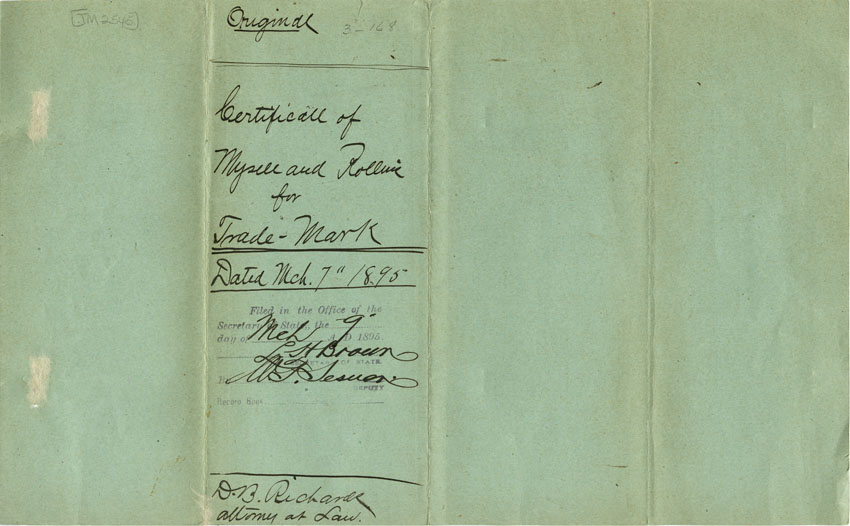 JM2546
Original
3-168
Certificate of
Mysell and Rollins
for
Trade-Mark
Dated Mch. 7" 1895
Filed in the Office of the
Secretary of State, the
day of Mch 9" A.D 1895
L. H Brown
SECRETARY OF STATE
W. F.
DEPUTY
Record Book
D. B. Richards
attorney at Law.